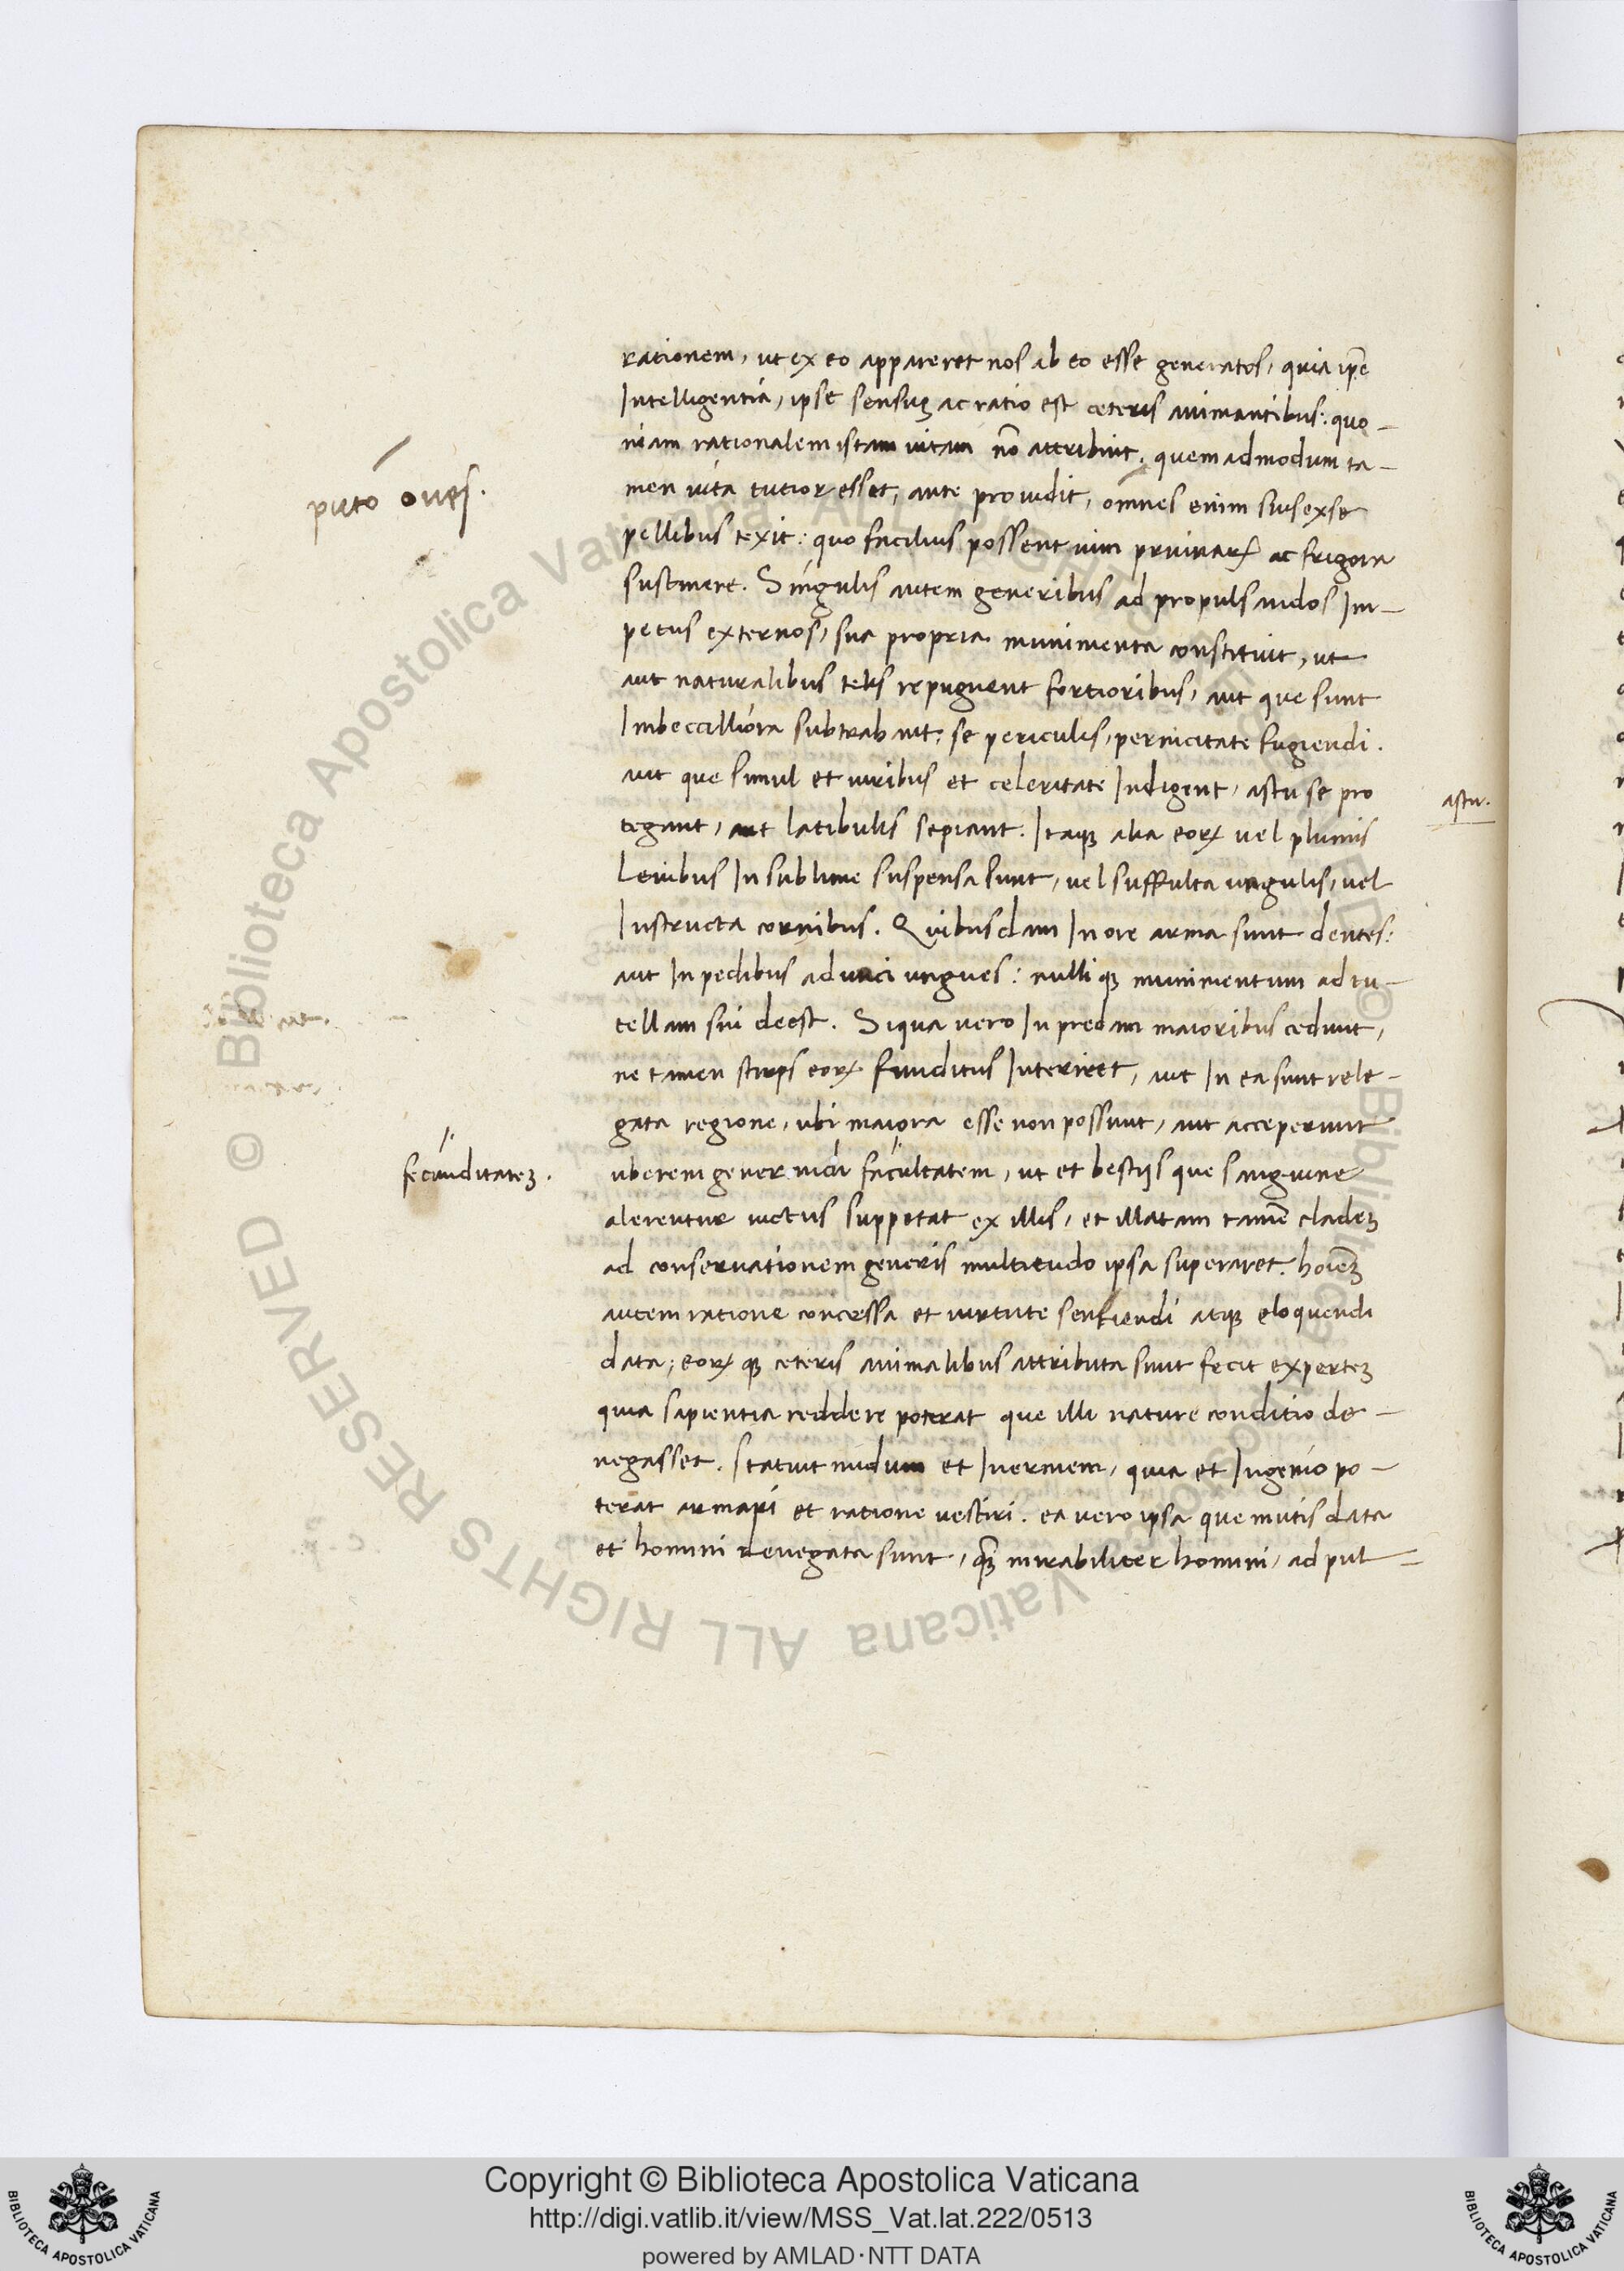 rationem, ut ex eo appareret nos ab eo esse generatos, quia ip̄e
Intelligentia, ipse sensuꝫ ac ratio est ceteris animantibus: quo-
niam rationalem istam uitam nō attribuit. quem ad modum ta-
men uita tutior esset, ante prouidit, omnes enim suis ex se
puto oues.
pellibus texit: quo facilius possent uim pruinaꝝ ac frigora
sustinere. Singulis autem generibus ad propulsandos Im-
petus externos, sua propria munimenta constituit, ut
aut naturalibus telis repugnent fortioribus, aut que sunt
Imbecilliora subtrahant se periculis, pernicitate fugiendi.
aut que simul et uiribus et celeritate Indigent, astu se pro
astu.
tegant, aut latibulis sepiant. Itaqꝫ alia eoꝝ uel plumis
Leuibus In sublime suspensa sunt, uel suffulta ungulis, uel
Instructa cornibus. Quibusdam In ore arma sunt dentes:
aut In pedibus adunci ungues: nulliqꝫ munimentum ad tu-
tellam sui deest. Siqua uero In predam maioribus cedunt,
ne tamen stirps eoꝝ funditus Interiret, aut In ea sunt rele-
gata regione, ubi maiora esse non possunt, aut acceperunt
fecunditateꝫ.
uberem generandi facultatem, ut et bestijs que sanguine
alerentur uictus suppetat ex illis, et illatam tamē cladeꝫ
ad conseruationem generis multitudo ipsa superaret. hoīeꝫ
autem ratione concessa et uirtute sentiendi atqꝫ eloquendi
data, eoꝝ qꝫ ceteris animalibus attributa sunt fecit experteꝫ
quia sapientia reddere poterat que illi nature conditio de-
negasset. Statuit nudum et Inermem, quia et Ingenio po-
terat armari et ratione uestiri. ea uero ipsa que mutis data
et homini denegata sunt, qꝫ mirabiliter homini, ad pul-
© Biblioteca Apostolica Vaticana ALL RIGHTS RESERVED
Copyright © Biblioteca Apostolica Vaticana
http://digi.vatlib.it/view/MSS_Vat.lat.222/0513
powered by AMLAD·NTT DATA
BIBLIOTECA APOSTOLICA VATICANA
BIBLIOTECA APOSTOLICA VATICANA